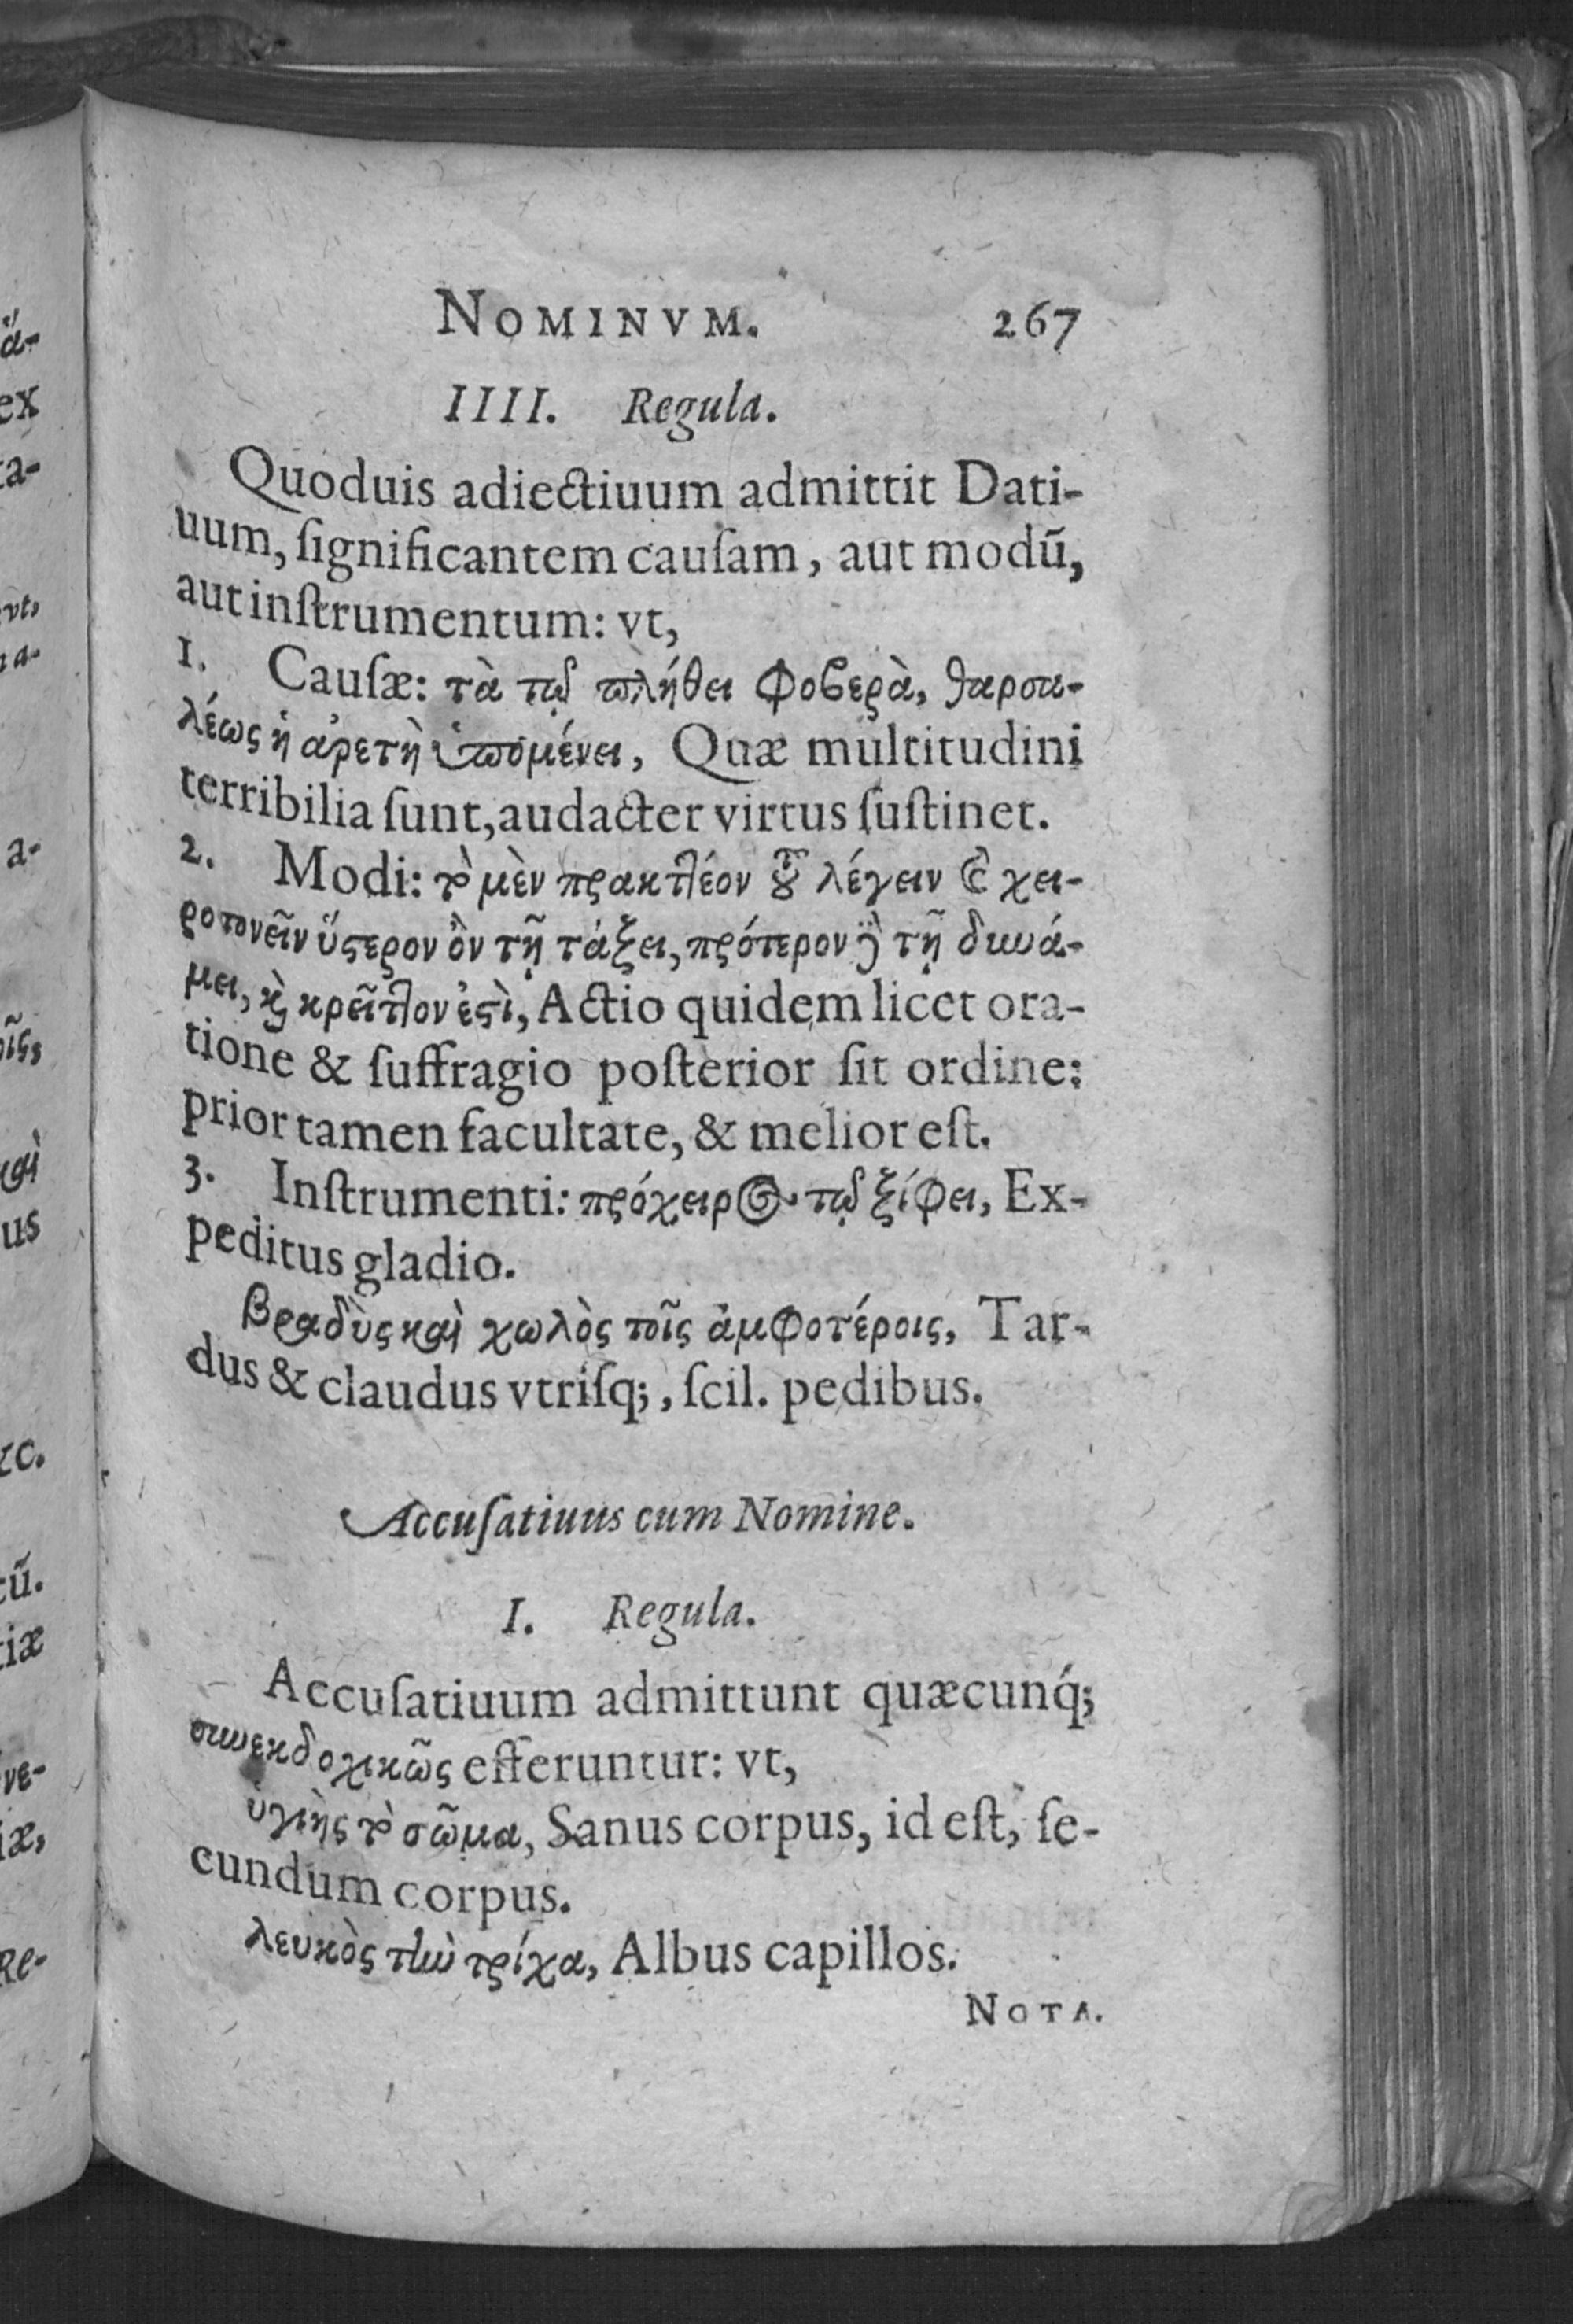 NOMINVM. 267
IIII. Regula.
Quoduis adiectiuum admittit Dati-
uum, ſignificantem cauſam, aut modũ,
aut inſtrumentum: vt,
1. Cauſæ: τὰ τῷ πλήθει φοβερὰ, θαρσα-
λέως ἡ ἀρετὴ ὑπομένει, Quæ multitudini
terribilia ſunt, audacter virtus ſuſtinet.
2. Modi: τὸ μὲν πρακτέον τοῦ λέγειν καὶ χει-
ροτονεῖν ὕστερον ὂν τῇ τάξει, πρότερον δὲ τῇ δυνά-
μει, καὶ κρεῖττον ἐστὶ, Actio quidem licet ora-
tione & ſuffragio poſterior ſit ordine:
prior tamen facultate, & melior eſt.
3. Inſtrumenti: πρόχειρος τῷ ξίφει, Ex-
peditus gladio.
βραδὺς καὶ χωλὸς τοῖς ἀμφοτέροις, Tar-
dus & claudus vtriſq;, ſcil. pedibus.
Accuſatiuus cum Nomine.
I. Regula.
Accuſatiuum admittunt quæcunq́;
συνεκδοχικῶς efferuntur: vt,
ὑγιὴς τὸ σῶμα, Sanus corpus, id eſt, ſe-
cundum corpus.
λευκὸς τὴν τρίχα, Albus capillos.
NOTA.